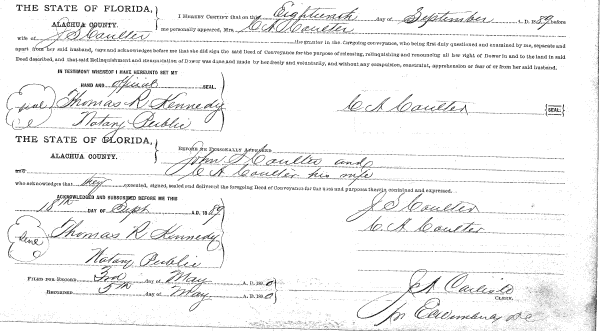 THE STATE OF FLORIDA,
ALACHUA COUNTY.
I HEREBY CERTIFY that on this Eighteenth day of September A. D. 1889 before
me personally appeared, Mrs. C A Coulter
wife of J S Coulter the grantor in the foregoing conveyance, who being first duly questioned and examined by me, separate and
apart from her said husband, says and acknowledges before me that she did sign the said Deed of Conveyance for the purpose of releasing, relinquishing and renouncing all her right of Dower in and to the land in said
Deed described, and that said Relinquishment and Renunciation of Dower was done and made by her freely and voluntarily, and without any compulsion, constraint, apprehension or fear of or from her said husband.
IN TESTIMONY WHEREOF I HAVE HEREUNTO SET MY
HAND AND official SEAL.
Thomas R Kennedy
Notary Public
C A Coulter (SEAL)
THE STATE OF FLORIDA,
ALACHUA COUNTY.
BEFORE ME PERSONALLY APPEARED
John S Coulter and
C A Coulter his wife
who acknowledges that they executed, signed, sealed and delivered the foregoing Deed of Conveyance for the uses and purposes therein contained and expressed.
ACKNOWLEDGED AND SUBSCRIBED BEFORE ME THIS
18th DAY OF Sept A. D. 1889
J S Coulter
C A Coulter
Thomas R Kennedy
Notary Public
FILED FOR RECORD 3rd day of May A. D. 1890
RECORDED 5th day of May A. D. 1890
J A Carlisle
CLERK.